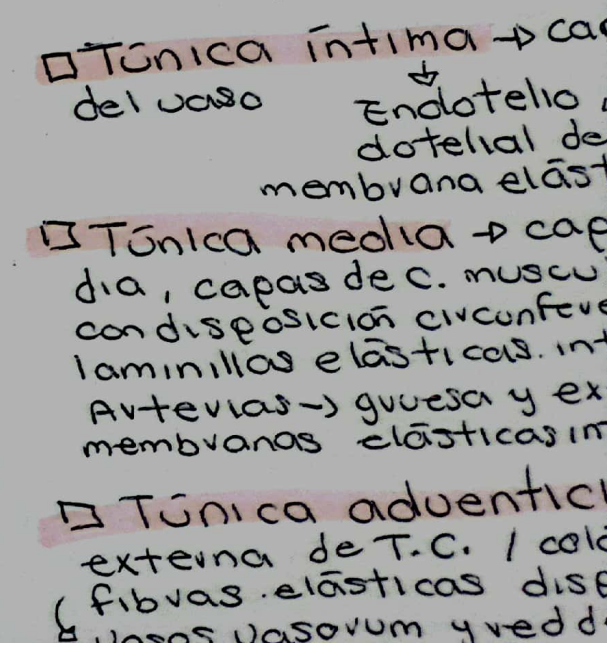 Túnica íntima → ca
del vaso Endotelio,
dotelial de
membrana elást
Túnica media → cap
dia, capas de c. muscu
con disposición circunfere
laminillas elásticas. int
Arterias → gruesa y ex
membranas elásticas in
Túnica adventici
externa de T.C. / colá
fibras elásticas disp
vasos vasorum y red d